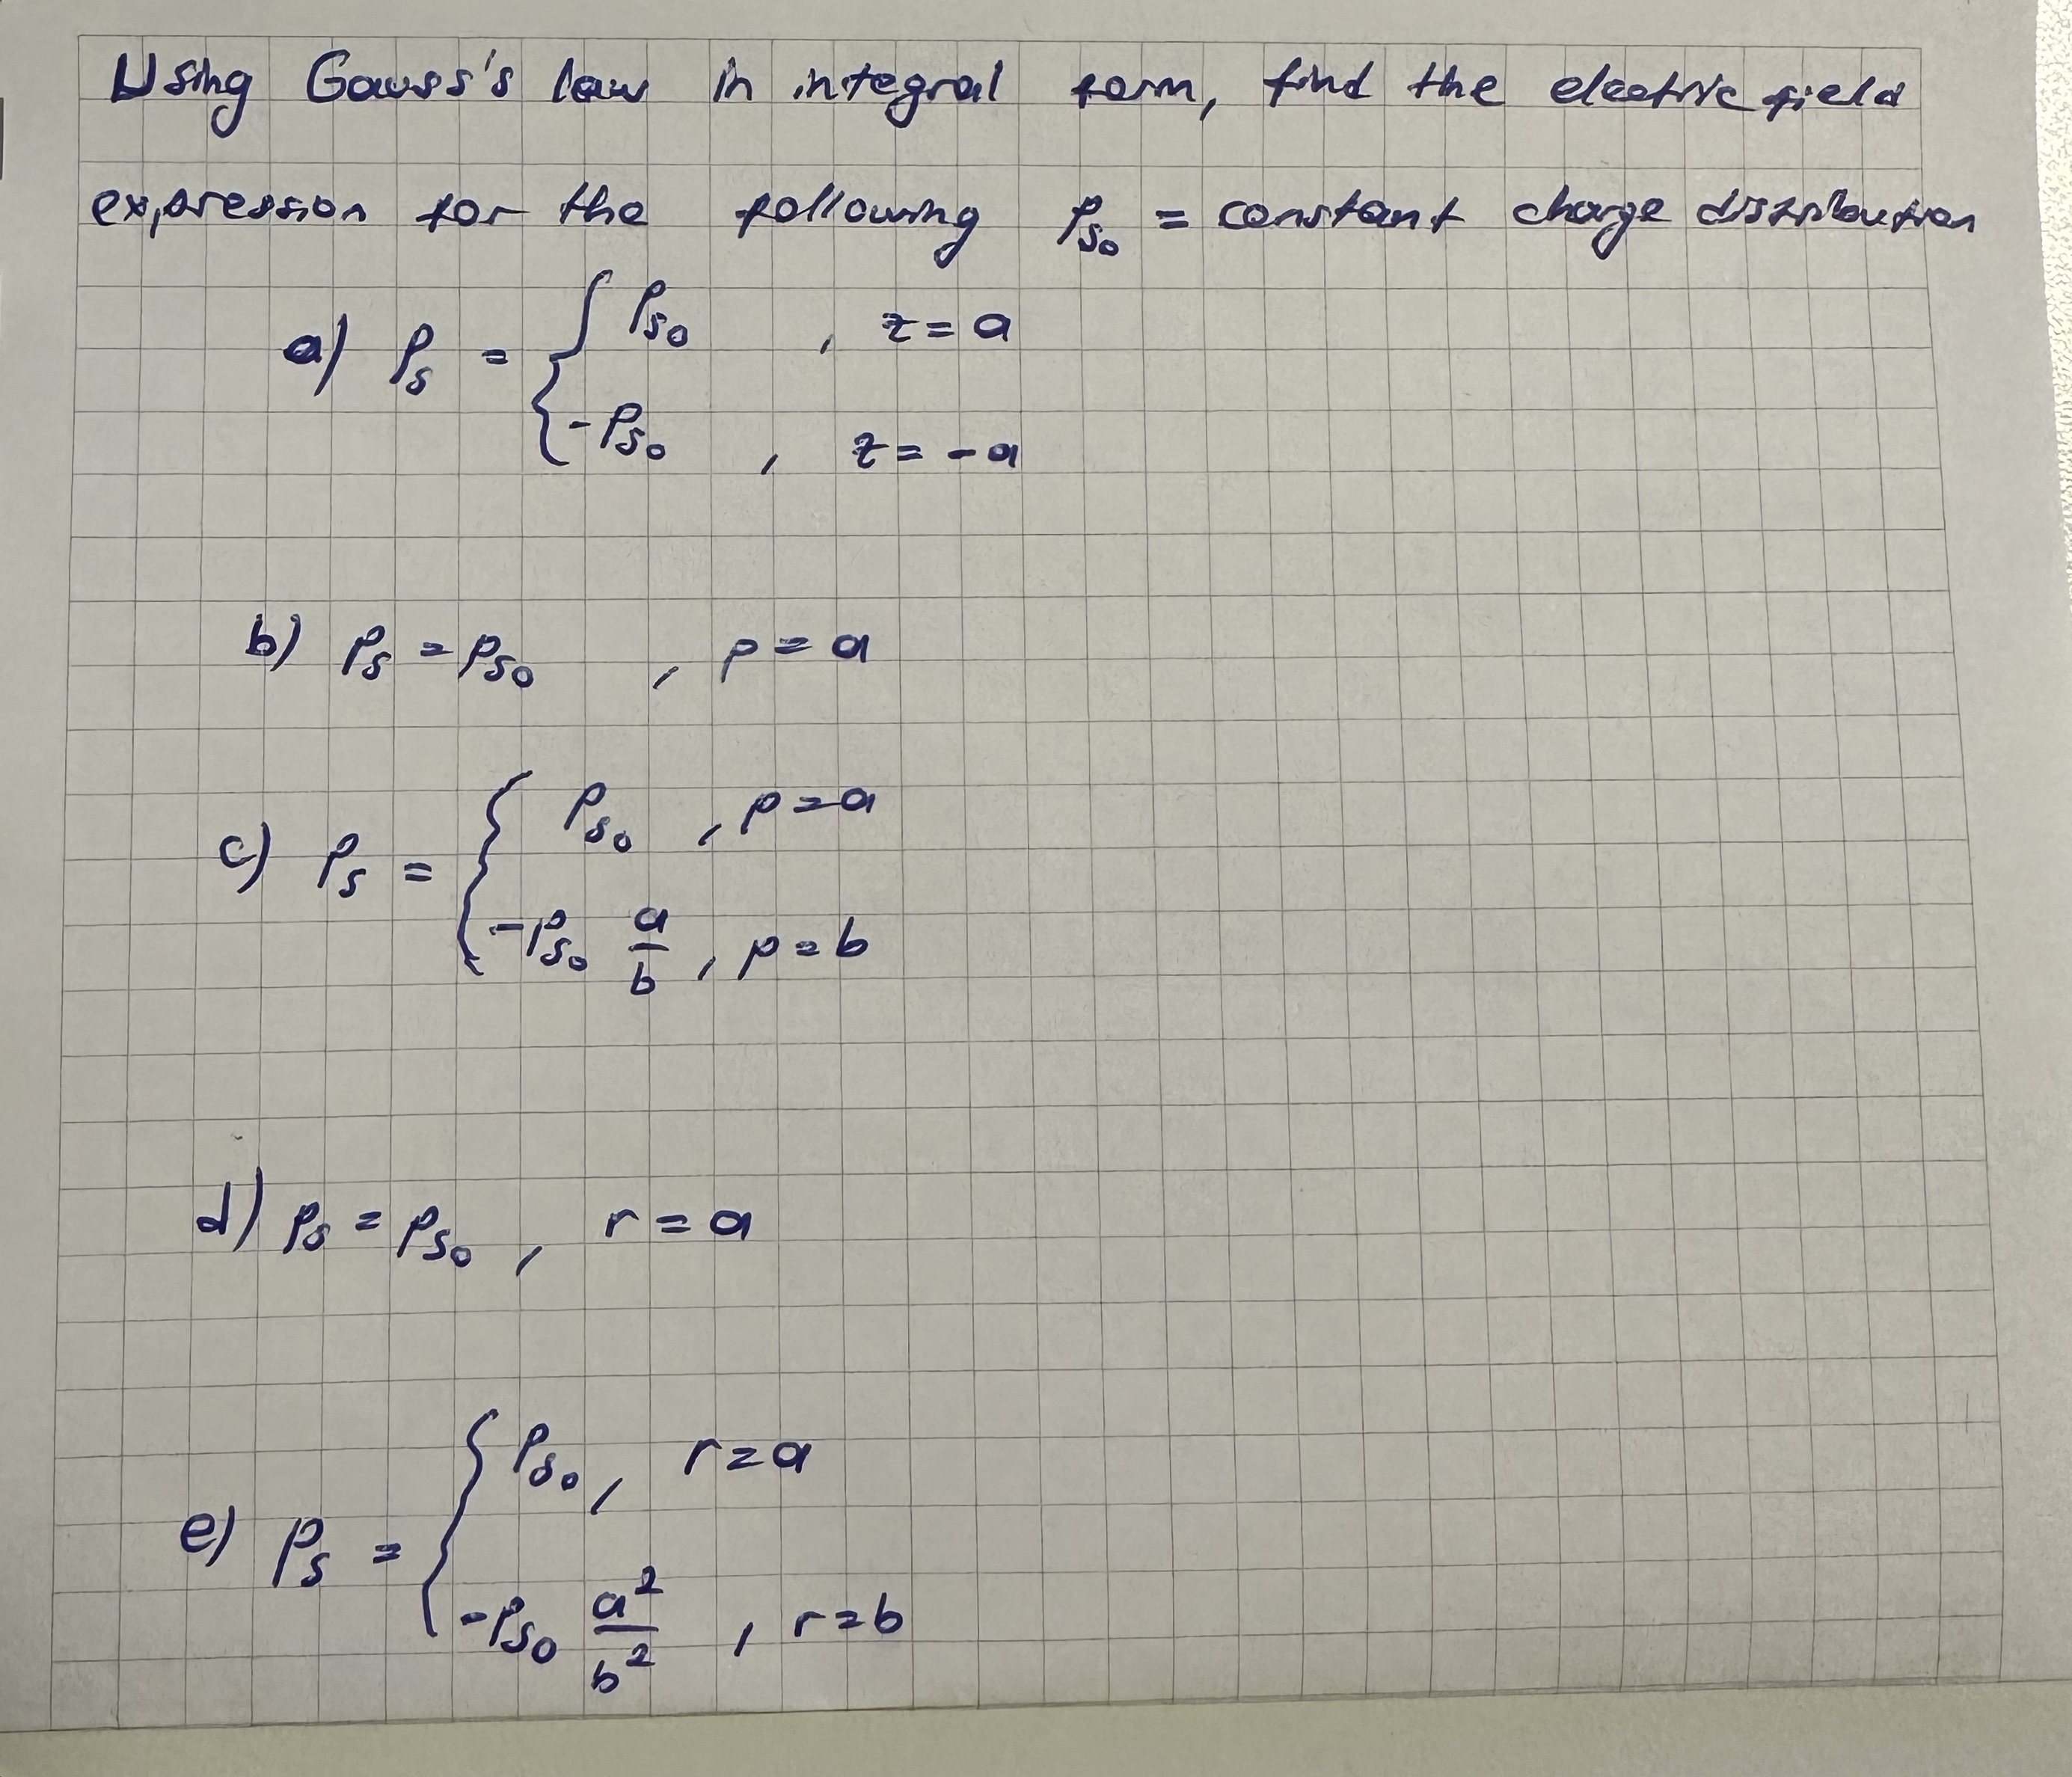 Using Gauss's law in integral form, find the electric field
expression for the following ρs₀ = constant charge distribution
a) ρs = { ρs₀ , z = a
-ρs₀ , z = -a
b) ρs = ρs₀ , ρ = a
c) ρs = { ρs₀ , ρ = a
-ρs₀ a/b , ρ = b
d) ρs = ρs₀ , r = a
e) ρs = { ρs₀ , r = a
-ρs₀ a²/b² , r = b